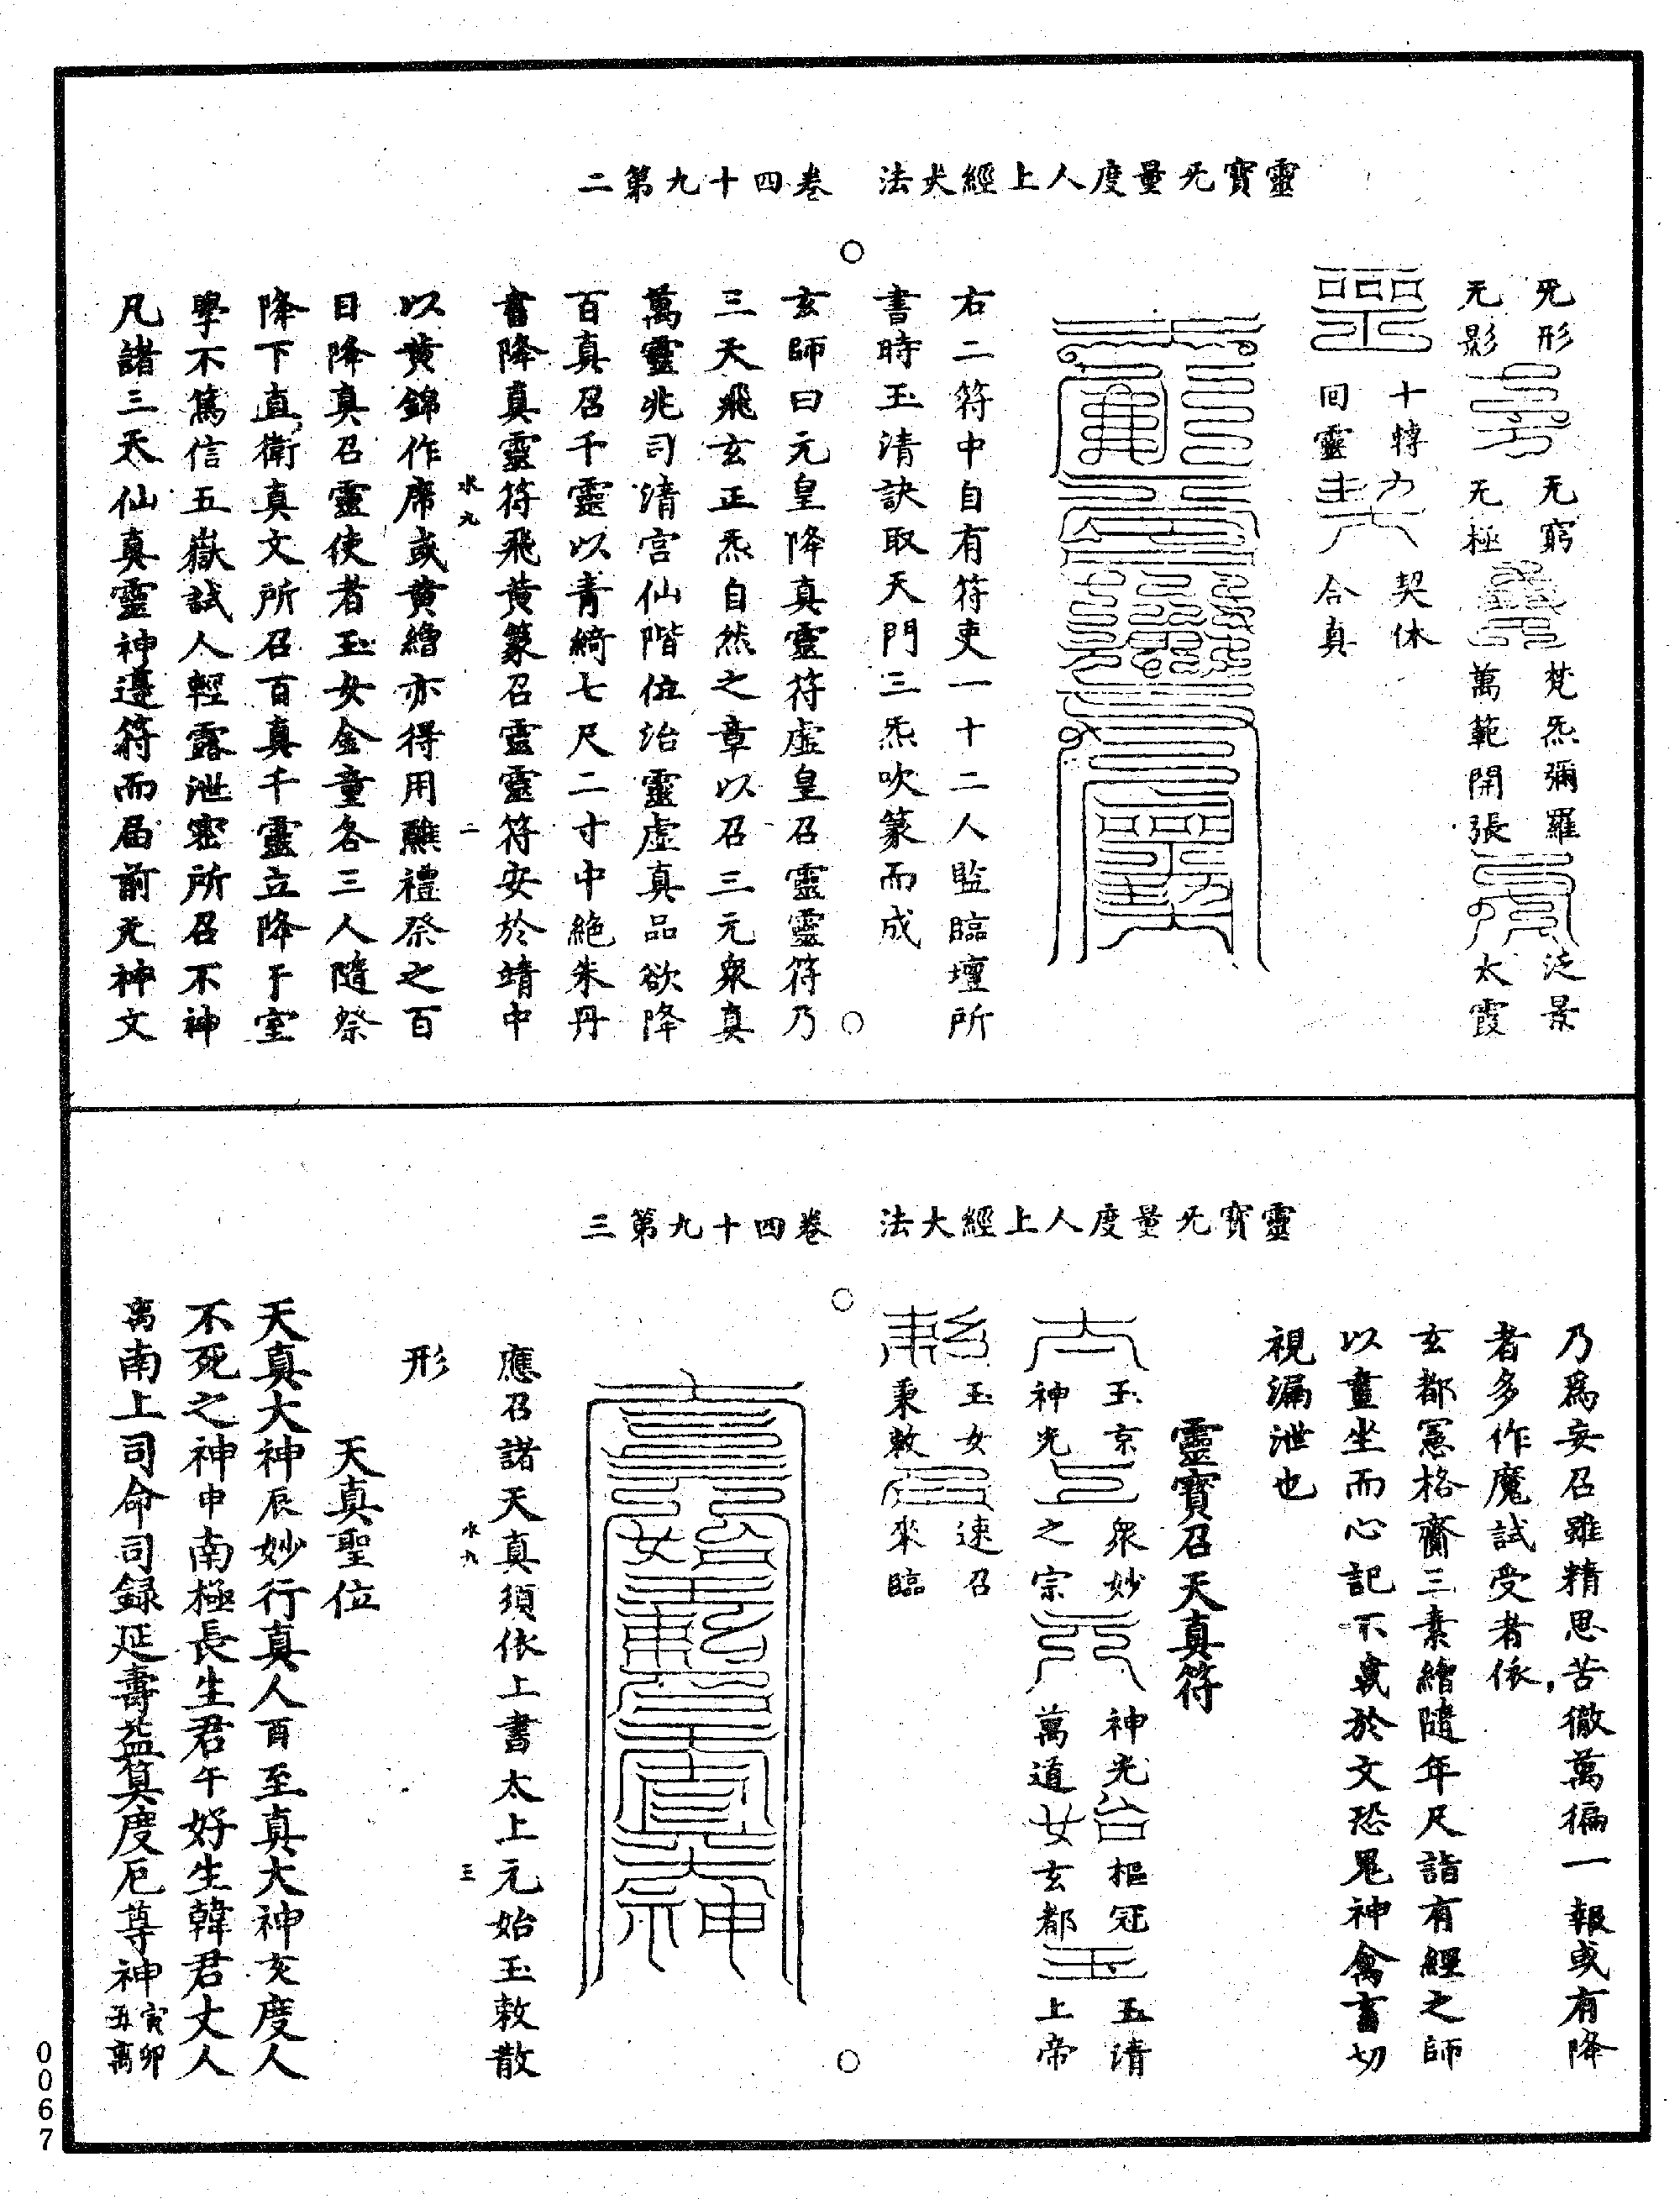 靈寶无量度人上經大法 卷四十九第二
无形 无窮 梵炁彌羅 泛景
无影 无極 萬範開張 太霞
十轉 契休
回靈 合真
右二符中自有符吏一十二人監臨壇所
書時玉清訣取天門三炁吹篆而成
玄師曰元皇降真靈符虛皇召靈靈符乃
三天飛玄正炁自然之章以召三元衆真
萬靈兆司清宮仙階位治靈虛真品欲降
百真召千靈以青綺七尺二寸中絶朱丹
書降真靈符飛黃篆召靈靈符安於靖中
水九 二
以黃錦作席或黃繒亦得用醮禮祭之百
日降真召靈使者玉女金童各三人隨祭
降下直衛真文所召百真千靈立降于室
學不篤信五嶽試人輕露泄密所召不神
凡諸三天仙真靈神遵符而届前无神文
靈寶无量度人上經大法 卷四十九第三
乃爲妄召雖精思苦徹萬徧一報或有降
者多作魔試受者依
玄都憲格齎三素繒隨年尺詣有經之師
以畫坐而心記不載於文恐鬼神禽畜切
視漏泄也
靈寶召天真符
玉京 衆妙 神光 樞冠 五清
神光 之宗 萬道 玄都 上帝
玉女 速召
秉敕 來臨
應召諸天真須依上書太上元始玉敕散
水九 三
形
天真聖位
天真大神辰妙行真人酉至真大神亥度人
不死之神申南極長生君午好生韓君丈人
离南上司命司録延壽益筭度厄尊神寅卯丑离
0067